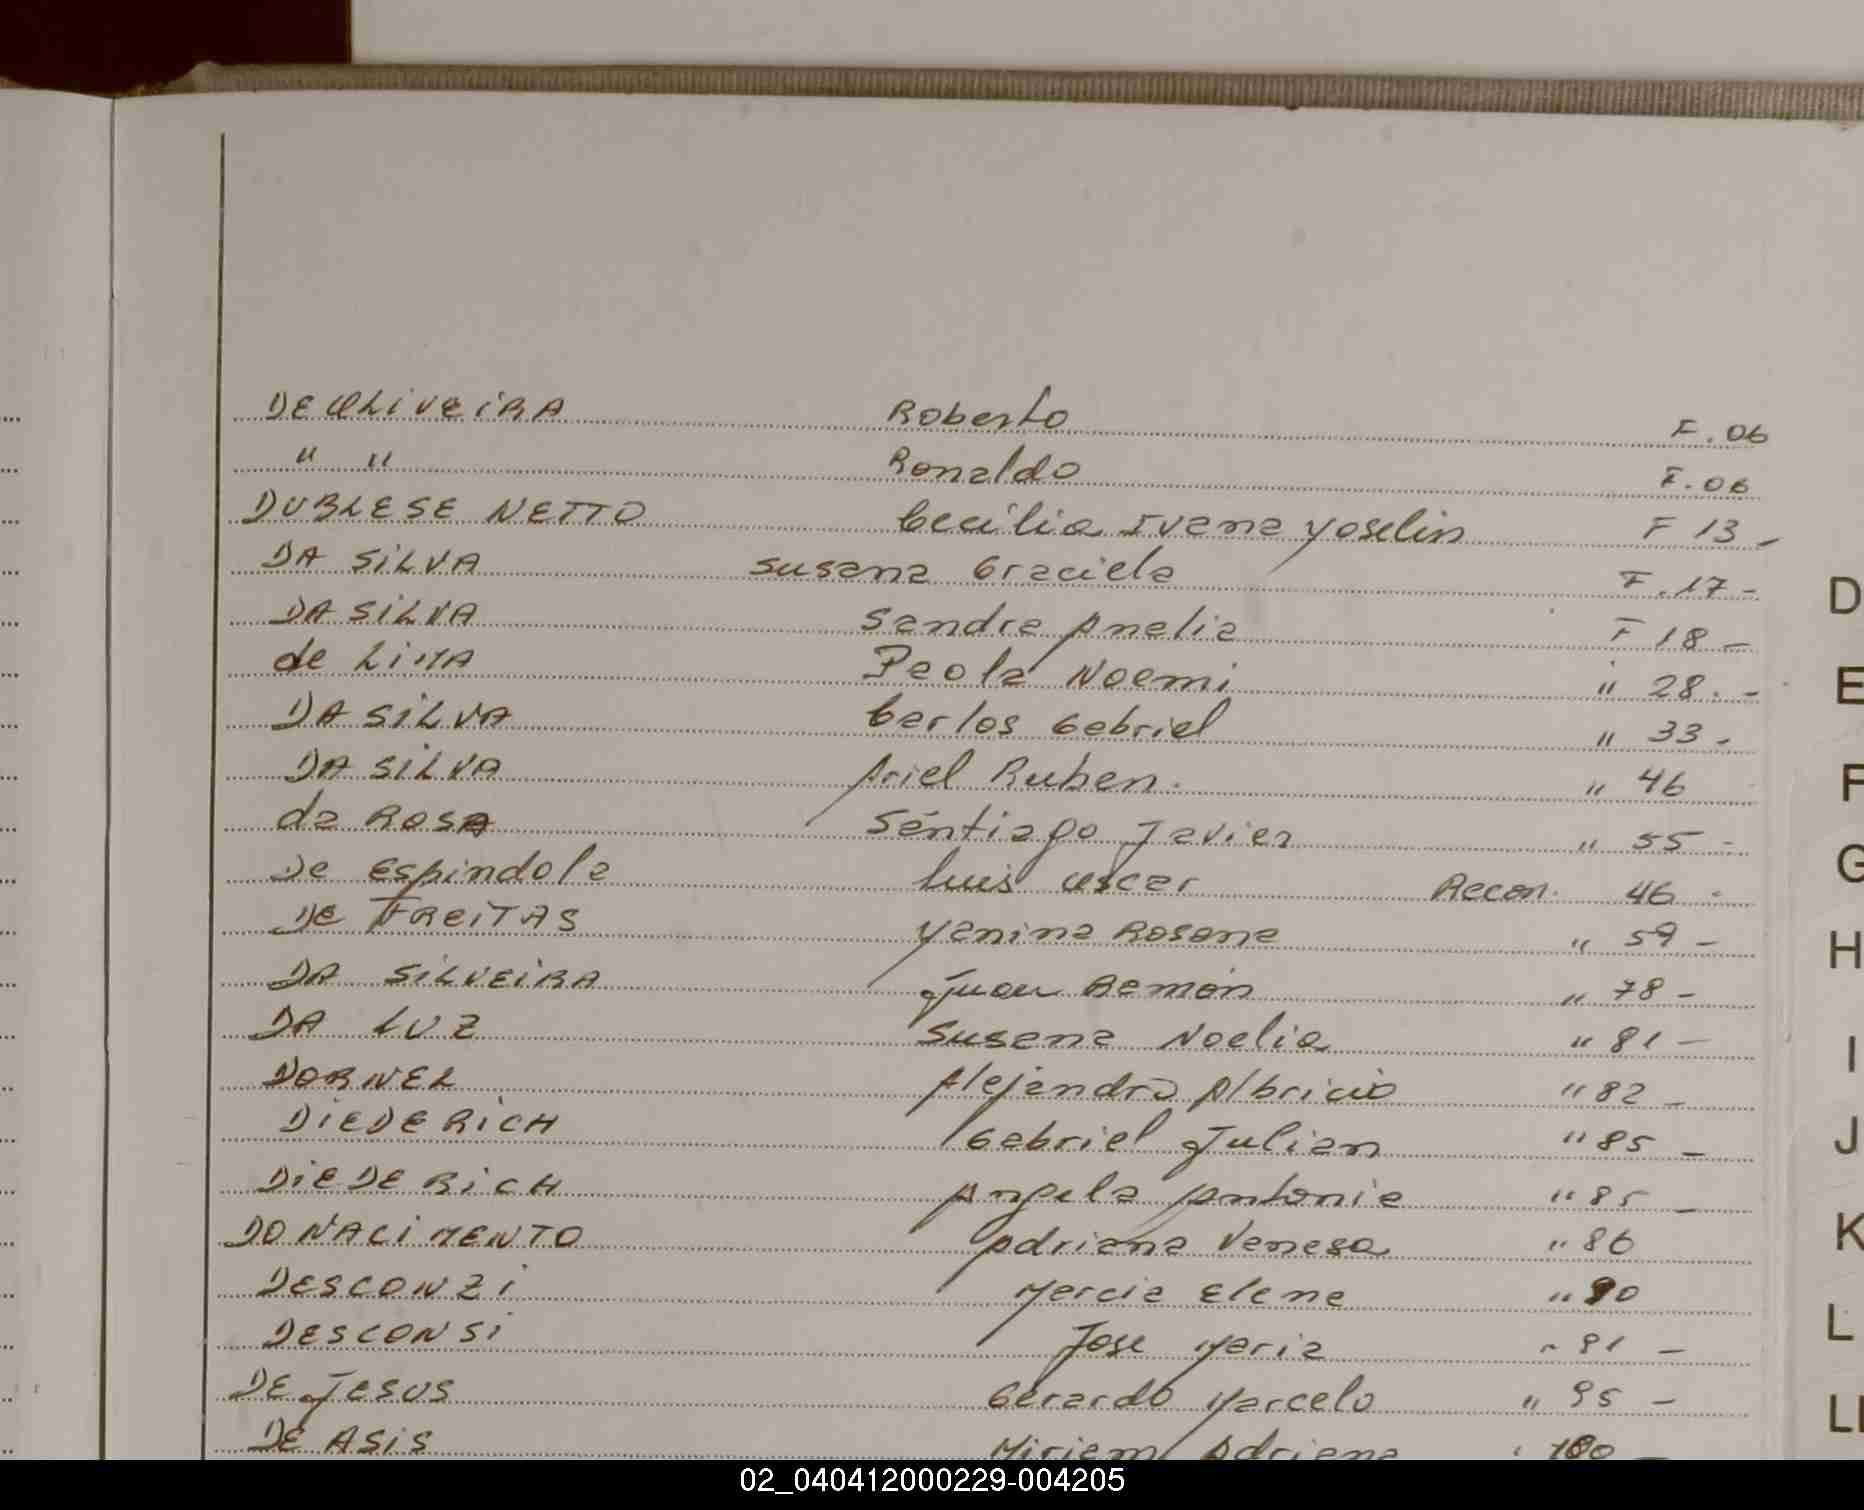 DE OLIVEIRA Roberto F. 06
" " Ronaldo F. 06
DUBLESE NETTO Cecilia Ivana Yoselin F 13 -
DA SILVA Susana Graciela F. 17 -
DA SILVA Sandra Analia F 18 -
de LIMA Paola Noemi " 28. -
DA SILVA Carlos Gabriel " 33 -
DA SILVA Ariel Ruben. " 46
da ROSA Santiago Javier " 55 -
De Espindola Luis Oscar Recon. 46 -
DE FREITAS Yanina Rosana " 59 -
DA SILVEIRA Juan Ramón " 78 -
DA LUZ Susana Noelia " 81 -
DORNEL Alejandro Albricio " 82 -
DIEDERICH Gabriel Julian " 85 -
DIEDERICH Angela Antonia " 85 -
DO NACIMENTO Adriana Vanesa " 86
DESCONZI Marcia Elena " 90
DESCONSI Jose Maria " 91 -
DE JESUS Gerardo Marcelo " 95 -
DE ASIS Miriam Adriana " 100 -
D
E
F
G
H
I
J
K
L
LL
02_040412000229-004205